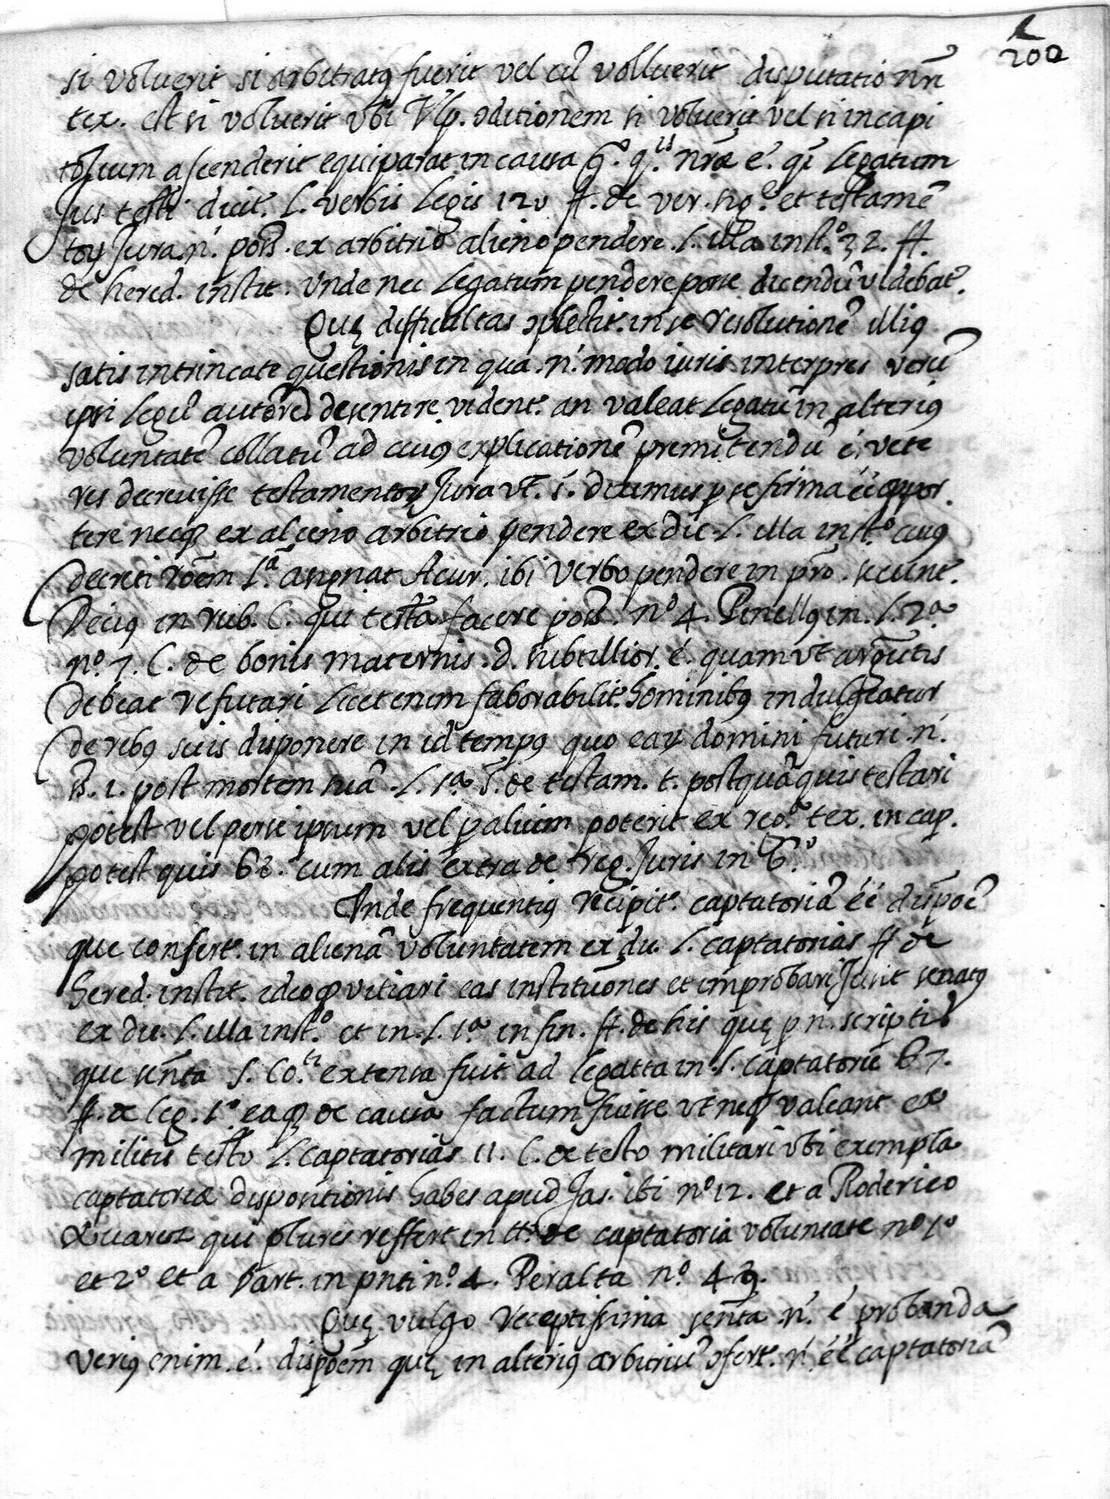 200
si voluerit si arbitratus fuerit vel cũ volluerit disputatio nrĩ
tex. est si voluerit vbi Vlp. ↄditionem si voluerit vel si in capi
tolium ascenderit equiparat in causa q̃. q.is nrã e. qĩ Legatum
ius testi dicit. L. verbis Legis 120 ff. de ver. sig.e et testamẽ
toꝝ Jura n. poss. ex arbitrio alieno pendere. L. illa inst.o 32. ff.
de hered. instit. Vnde nec Legatum pendere posse dicendũ videbat.
Quę difficultas ↄplectit. in se resolutionẽ illiꝯ
satis intrincate questionis in qua n. modo iuris interpres verũ
ipsi Legũ autores desentire vident. an valeat Legatũ in alteriꝯ
voluntatẽ collatũ ad cuiꝯ explicationẽ premitendũ é. vete
res decrevisse testamentoꝝ Jura vt. í. dicimus p se firma éé oppor.
tere neqꝫ ex alieno arbitrio pendere ex dic. L. illa inst.o cuiꝯ
decreti rõem L.a asignat Acur. ibi verbo pendere in prõ. secunt.
Deciꝯ in rub. C. qui testã facere poss. no 4. Penellꝯ in. L. 2.a
no. 7. C. de bonis maternis. d. subtillior. é. quam vt argũtis
debeat refutari Licet enim faborabilit. hominibꝯ indulgeatur
de rebꝯ suis disponere in id tempꝯ quo eaꝝ domini futuri n.
s. i. post mortem suã. L. 1.a ff. de testam. t. postquã quis testari
potest vel per se ipsum vel p alium poterit ex reo.a tex. in cap.
potest quis 68. cum aliis extra de reg. Juris in 6.o
Inde frequentiꝯ recipit. captatoriã éé disposẽ
que confert. in alienã voluntatem ex du. L. captatorias ff de
hered. instit. ideoqꝫ vitiari eas institutiones et improbari Jusit senatꝯ
ex du. L. illa inst.o et in L. 1.a in fin. ff. de his quę p n. scriptis
que sentã S. Co.ti extensa fuit ad legatta in L. captatorie 67.
ff. de leg. 1.o eaqꝫ de causa factum fuisse vt neqꝫ valeant ex
militis testo L. captatorias 11. C. de testo militari vbi exempla
captatoriæ dispositionis habes apud Jas. ibi no 12. et a Roderico
Xuarez qui plures reffert in tt.o de captatoria voluntate no 1o
et 2o et a Bart. in pnti no. 4. Peralta no. 43.
Quę vulgo receptissima sentã n. é probanda
Veriꝯ enim é. dispoẽm quę in alteriꝯ arbitriũ ↄfert. n. éé captatoriã